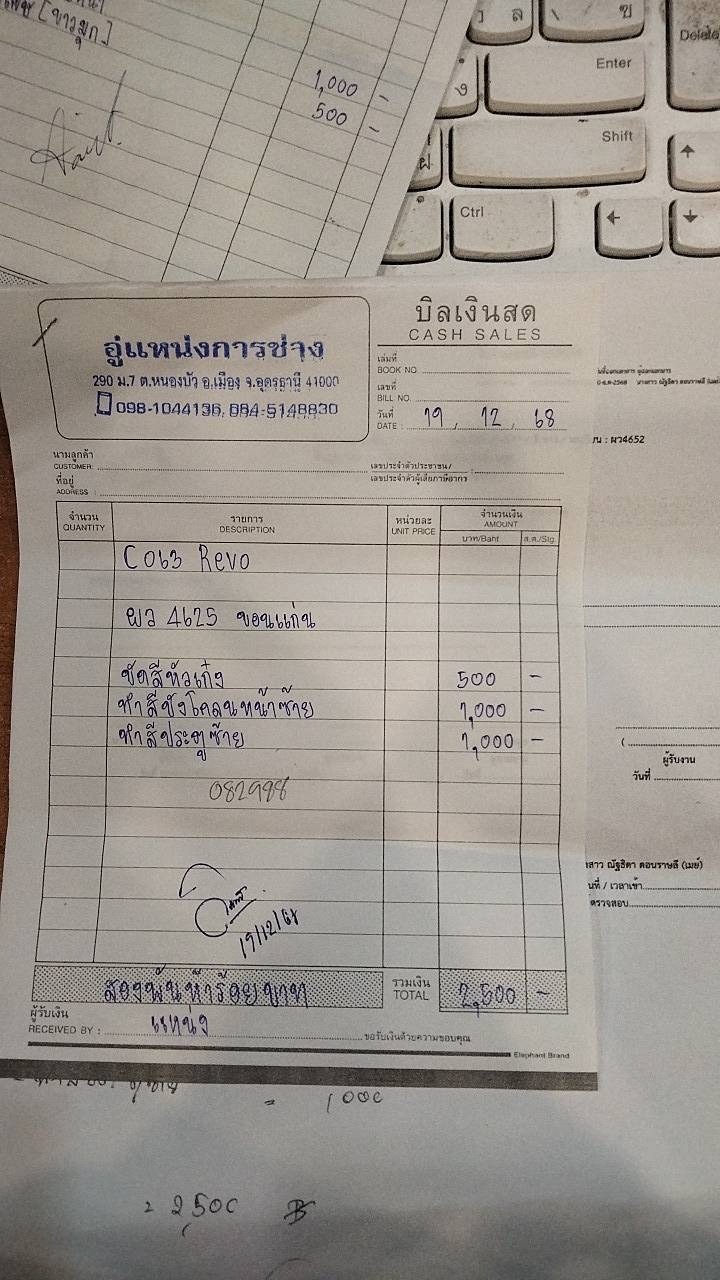 [ขาวมุก]
1,000 -
500 -
ว ล ข
Delete
Enter
ง
Shift
ฝ
Ctrl
อู่แหน่งการช่าง
290 ม.7 ต.หนองบัว อ.เมือง จ.อุดรธานี 41000
098-1044136, 084-5148830
บิลเงินสด
CASH SALES
เล่มที่
BOOK NO.
เลขที่
BILL NO.
วันที่
DATE : 19, 12, 68
นามลูกค้า
CUSTOMER:
เลขประจำตัวประชาชน/
เลขประจำตัวผู้เสียภาษีอากร
ที่อยู่
ADDRESS :
จำนวน
QUANTITY
รายการ
DESCRIPTION
หน่วยละ
UNIT PRICE
จำนวนเงิน
AMOUNT
บาท/Baht ส.ต./Stg.
C063 Revo
ผว 4625 ขอนแก่น
ขัดสีหัวเก๋ง 500 -
ทำสีบังโคลนหน้าซ้าย 1,000 -
ทำสีประตูซ้าย 1,000 -
082998
19/12/68
สองพันห้าร้อยบาท
รวมเงิน
TOTAL
2,500 -
ผู้รับเงิน
RECEIVED BY : แหน่ง
ขอรับเงินด้วยความขอบคุณ
Elephant Brand
: ผว4652
(
ผู้รับงาน
วันที่
สาว ณัฐธิดา ดอนราษลี (เมย์)
นที่ / เวลาเข้า
ตรวจสอบ
= 1000
= 2,500 ฿